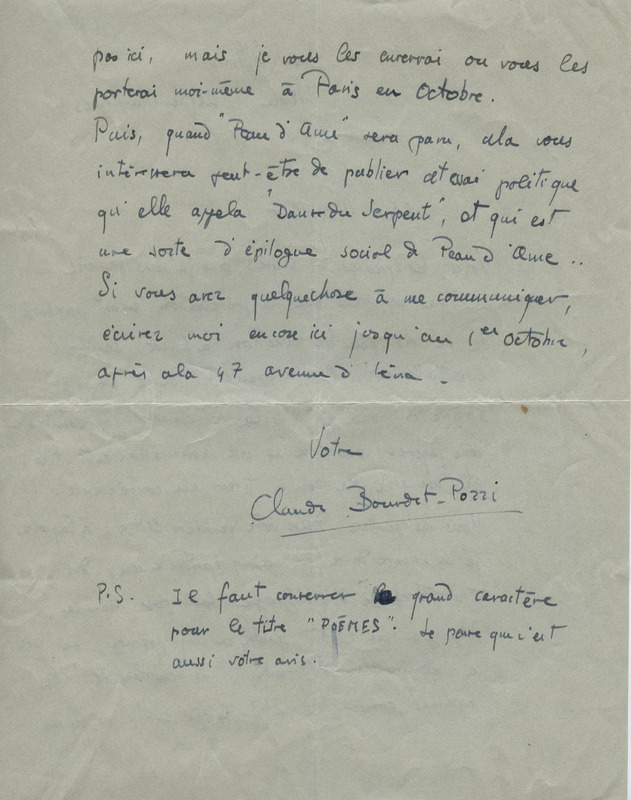 pas ici, mais je vous les enverrai ou vous les
porterai moi-même à Paris en Octobre.
Puis, quand "Peau d'Ame" sera paru, cela vous
intéressera peut-être de publier cet essai politique
qu'elle appela "Danse du Serpent", et qui est
une sorte d'épilogue social de Peau d'Ame ..
Si vous avez quelquechose à me communiquer,
écrivez moi encore ici jusqu'au 1er Octobre,
après cela 47 avenue d'Iéna.
Votre
Claude Bourdet-Pozzi
P.S. Il faut conserver le grand caractère
pour le titre "POËMES". Je pense que c'est
aussi votre avis.